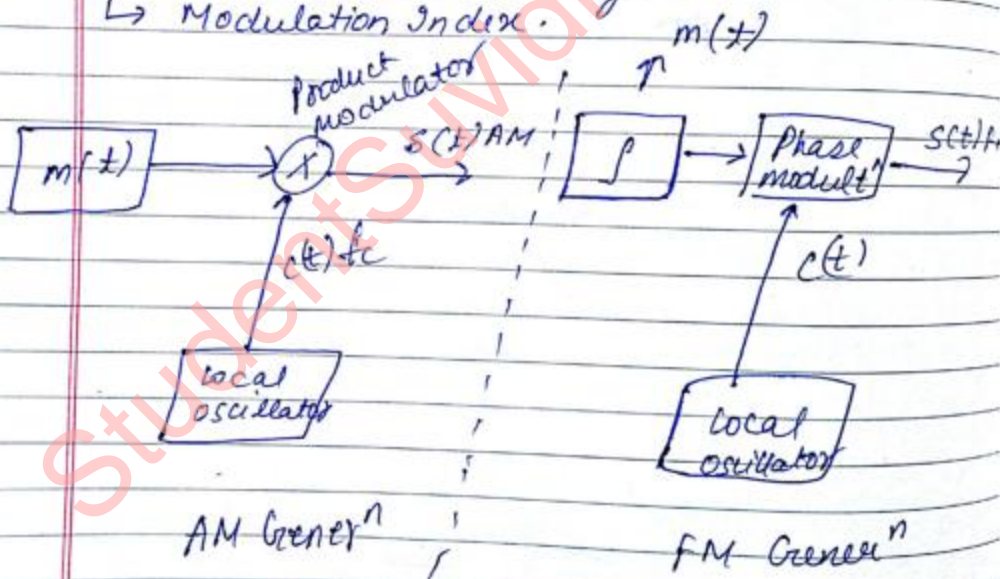 ↳ Modulation Index.
Product
modulator
m(t)
X
S(t) AM
c(t) fc
Local
oscillator
AM Generⁿ
m(t)
∫
Phase
modultⁿ
c(t)
Local
oscillator
FM Generⁿ
StudentSuvid